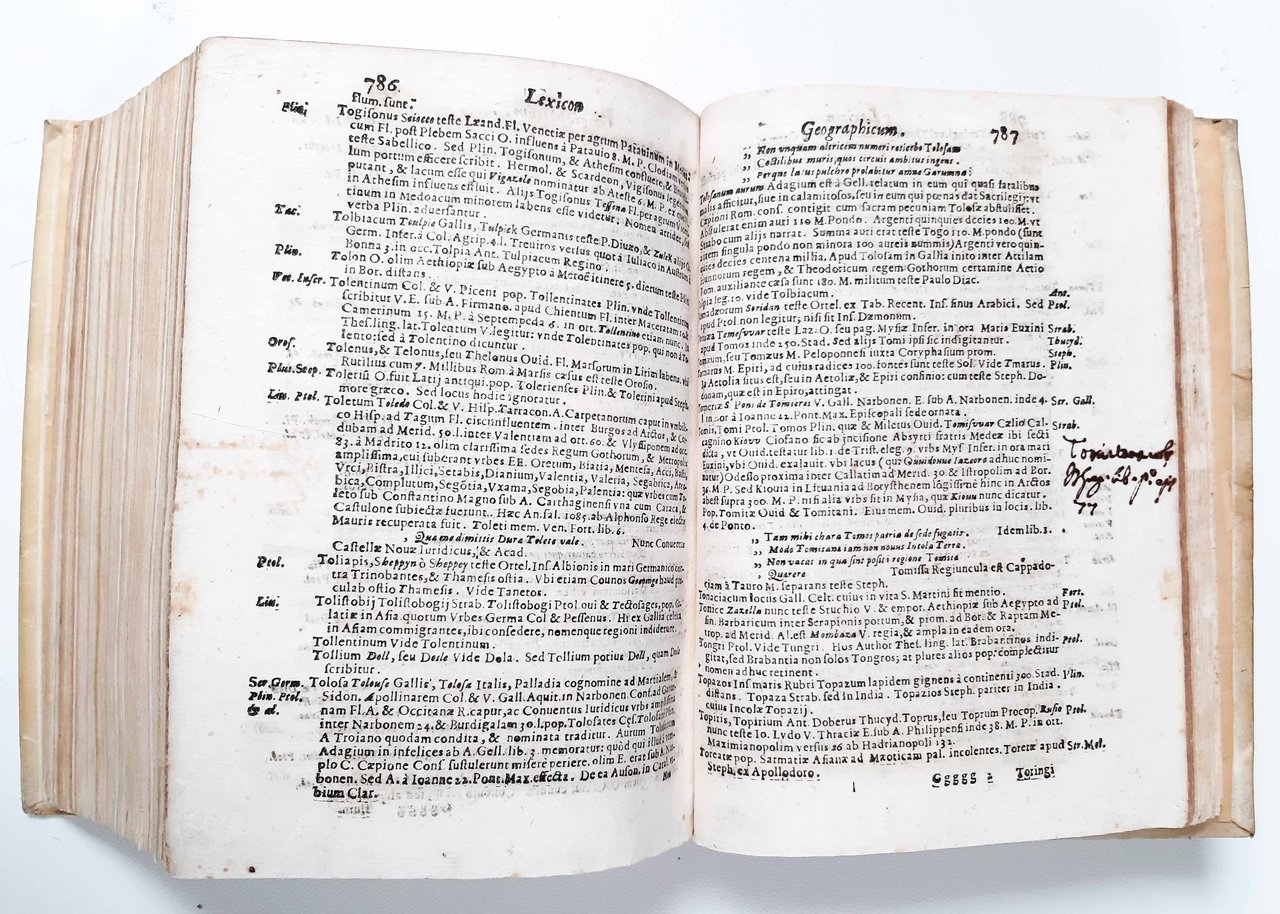 786
Lexicon
flum. sunt.
Plin. Togisonus Saiocco teste Leand. Fl. Venetiæ per agrum Patauinum in
cum Fl. post Plebem Sacci O. influens à Patauio 8. M. P. Clodiam
teste Sabellico. Sed Plin. Togisonum, & Athesim confluere, &
lum portum efficere scribit. Hermol. & Scardeon, Vigisonus legendum
putant, & lacum esse qui Vigazolo nominatur ab Ateste 6. M. P. ex quo
in Athesim influens effluit. Alijs Togisonus Tessena Fl. per agrum
tinum in Medoacum minorem labens esse videtur. Nomen arridet, sed
verba Plin. aduersantur.
Tac. Tolbiacum Toulpie Gallis, Tulpiek Germanis teste P. Diuzo, & Zulek alijs
Germ. Infer. à Col. Agrip. 4. l. Treuiros versus quot à Iuliaco in Austrum
Bonna 3. in occ. Tolpia Ant. Tulpiacum Regino.
Plin. Tolon O. olim Aethiopiæ sub Aegypto à Meroë itinere 5. dierum teste Plin.
in Bor. distans.
Vet. Inscr. Tolentinum Col. & V. Picent pop. Tollentinates Plin. vnde Tollentinum
scribitur V. E. sub A. Firmano. apud Chientum Fl. inter Maceratam
Camerinum 15. M. P. à Septempeda 6. in ort. Tollentino etiam nunc.
Thes. ling. lat. Tolentum V. legitur: vnde Tolentinates pop. qui non à
lento: sed à Tolentino dicuntur.
Oros. Tolenus, & Telonus, seu Thelonus Ouid. Fl. Marsorum in Lirim labens, vbi
Rutilius cum 7. Millibus Rom. à Marsis cæsus est teste Orosio.
Plin. Steph. Toleriū O. fuit Latij antiqui. pop. Tolerienses Plin. & Tolerini apud Steph.
more græco. Sed locus hodie ignoratur.
Liu. Ptol. Toletum Toledo Col. & V. Hisp. Tarracon. A. Carpetanorum caput in vmbili-
co Hisp. ad Tagum Fl. circumfluentem. inter Burgos ad Arctos, & Cor-
dubam ad Merid. 50. l. inter Valentiam ad ort. 60. & Vlyssiponem ad occ.
83. à Madrito 12. olim clarissima sedes Regum Gothorum, & Metropolis
amplissima, cui suberant vrbes EE. Oretum, Biatia, Mentesa, Acci, Basti,
Vrci, Bistra, Illici, Setabis, Dianium, Valentia, Valeria, Segabrica, Arca-
bica, Complutum, Segōtia, Vxama, Segobia, Palentia: quæ vrbes cum To-
leto sub Constantino Magno sub A. Carthaginensi vna cum Catara, &
Castulone subiectæ fuerunt. Hæc An. sal. 1085. ab Alphonso Rege eiectis
Mauris recuperata fuit. Toleti mem. Ven. Fort. lib. 6.
,, Quamæ dimittis Dura Toleto vale. Nunc Conuentus
Castellæ Nouæ Iuridicus, & Acad.
Ptol. Toliapis, Sheppyn ò Sheppey teste Ortel. Ins. Albionis in mari Germanico con-
tra Trinobantes, & Thamesis ostia. Vbi etiam Counos haud pro-
cul ab ostio Thamesis. Vide Tanetos.
Liu. Tolistobij Tolistobogij Strab. Tolistobogi Ptol. qui & Tectosages, pop. Ga-
latiæ in Asia quorum Vrbes Germa Col & Pessenus. Hi ex Gallia celtica
in Asiam commigrantes, ibi consedere, nomenque regioni indiderunt.
Tollentinum Vide Tolentinum.
Tollium Doll, seu Dosle Vide Dola. Sed Tollium potius Dell, quam Dosla
scribitur.
Ser. Germ. Tolosa Tolouse Gallis, Tolosa Italis, Palladia cognomine ad Martialem, &
Plin. Ptol. Sidon. Apollinarem Col. & V. Gall. Aquit. in Narbonen. Conf. ad Garum-
& al. nam Fl. A. & Occitanæ R. caput, ac Conuentus Iuridicus vrbs amplissima
inter Narbonem 24. & Burdigalam 30. l. pop. Tolosates Cęs. Tolosani Plin.
A Troiano quodam condita, & nominata traditur. Aurum Tolosanum
Adagium in infelices ab A. Gell. lib. 3. memoratur: quòd qui illud ex tem-
plo C. Cæpione Cons. sustulerunt miserè periere. olim E. erat sub A. Nar-
bonen. Sed A. à Ioanne 22. Pont. Max. effecta. De ea Auson. in Catal. Vr-
bium Clar. Non
Geographicum. 787
,, Non vnquam altricem numeri reticebo Tolosam
,, Coctilibus muris, quos circuit ambitus ingens.
,, Perque latus pulchro prolabitur amne Garumna:
Tolosanum aurum Adagium est à Gell. relatum in eum qui quasi fatalibus
malis afficitur, siue in calamitosos, seu in eum qui pœnas dat Sacrilegij: vt
Cæpioni Rom. cons. contigit cum sacram pecuniam Tolosæ abstulisset.
Abstulerat enim auri 110 M. Pondo. Argenti quinquies decies 100. M. vt
Strabo cum alijs narrat. Summa auri erat teste Togo 110. M. pondo (sunt
autem singula pondo non minora 100. aureis nummis) Argenti vero quin-
quies decies centena millia. Apud Tolosam in Gallia inito inter Attilam
Hunnorum regem, & Theodoricum regem Gothorum certamine Aetio
Rom. auxiliante cæsa sunt 180. M. militum teste Paulo Diac.
Tolpia leg. 10. vide Tolbiacum. Ant.
Soridan teste Ortel. ex Tab. Recent. Ins. sinus Arabici. Sed Ptol.
apud Ptol. non legitur; nisi sit Ins. Dæmonum.
Temesvvar teste Laz. O. seu pag. Mysiæ Infer. in ora Maris Euxini Strab.
apud Tomos inde 250. Stad. Sed alijs Tomi ipsi sic indigitantur. Thucyd.
Tomæum, seu Tomæus M. Peloponnesi iuxta Coryphasium prom. Steph.
Tomarus M. Epiri, ad cuius radices 100. fontes sunt teste Sol. Vide Tmarus. Plin.
In Aetolia situs est, seu in Aetoliæ, & Epiri confinio: cum teste Steph. Do-
donam, quæ est in Epiro, attingat.
Tomeriæ S. Pons de Tomieres V. Gall. Narbonen. E. sub A. Narbonen. inde 4. Ser. Gall.
l. in Bor à Ioanne 22. Pont. Max. Episcopali sede ornata.
Tomis, Tomi Ptol. Tomos Plin. quæ & Miletus Ouid. Tomisvvar Cælio Cal- Strab.
cagnino Kiovv Ciofano sic ab incisione Absyrti fratris Medeæ ibi secti
dicta, vt Ouid. testatur lib. 1. de Trist. eleg. 9. vrbs Mys. Infer. in ora mari
Euxini, vbi Ouid. exalauit. vbi lacus (qu Ouidouue lazcero adhuc nomi-
natur) Odessio proxima inter Callatim ad Merid. 30 & Istropolim ad Bor.
36. M. P. Sed Kiouia in Lituania ad Borysthenem lōgissimè hinc in Arctos
abest supra 300. M. P. nisi alia vrbs sit in Mysia, quæ Kiouu nunc dicatur.
Pop. Tomitæ Ouid & Tomitani. Eius mem. Ouid. pluribus in locis. lib.
4. de Ponto.
,, Tam mihi chara Tomos patria de sede fugatis. Idem lib. 1.
,, Modo Tomitana iam non nouus Incola Terra.
,, Non vacat in qua sint positi regione Tomitæ
,, Quærere Tomissa Regiuncula est Cappado-
ciam à Tauro M. separans teste Steph.
Tonaciacum locus Gall. Celt. cuius in vita S. Martini fit mentio. Fort.
Tonice Zazella nunc teste Stuchio V. & empor. Aethiopiæ sub Aegypto ad Ptol.
sin. Barbaricum inter Serapionis portum, & prom. ad Bor. & Raptam Me-
trop. ad Merid. Al. est Mombaza V. regia, & ampla in eadem ora.
Tongri Ptol. Vide Tungri. Hos Author Thes. ling. lat. Brabantinos indi- Ptol.
gitat, sed Brabantia non solos Tongros; at plures alios pop. complectitur
nomen adhuc retinent.
Topazos Ins maris Rubri Topazum lapidem gignens à continenti 300. Stad. Plin.
distans. Topaza Strab. sed in India. Topazios Steph. pariter in India.
cuius Incolæ Topazij.
Topiris, Topirium Ant. Doberus Thucyd. Toprus, seu Toprum Procop. Rusio Ptol.
nunc teste Io. Lvdo V. Thraciæ E. sub A. Philippensi inde 38. M. P. in ort.
Maximianopolim versus 26 ab Hadrianopoli 132.
Toreatæ pop. Sarmatiæ Asianæ ad Mæoticam pal. incolentes. Toretæ apud Str. Mel.
Steph. ex Apollodoro.
Ggggg 2 Toringi
77